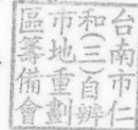 台南市仁
和(三)自辦
市地重劃
區籌備會